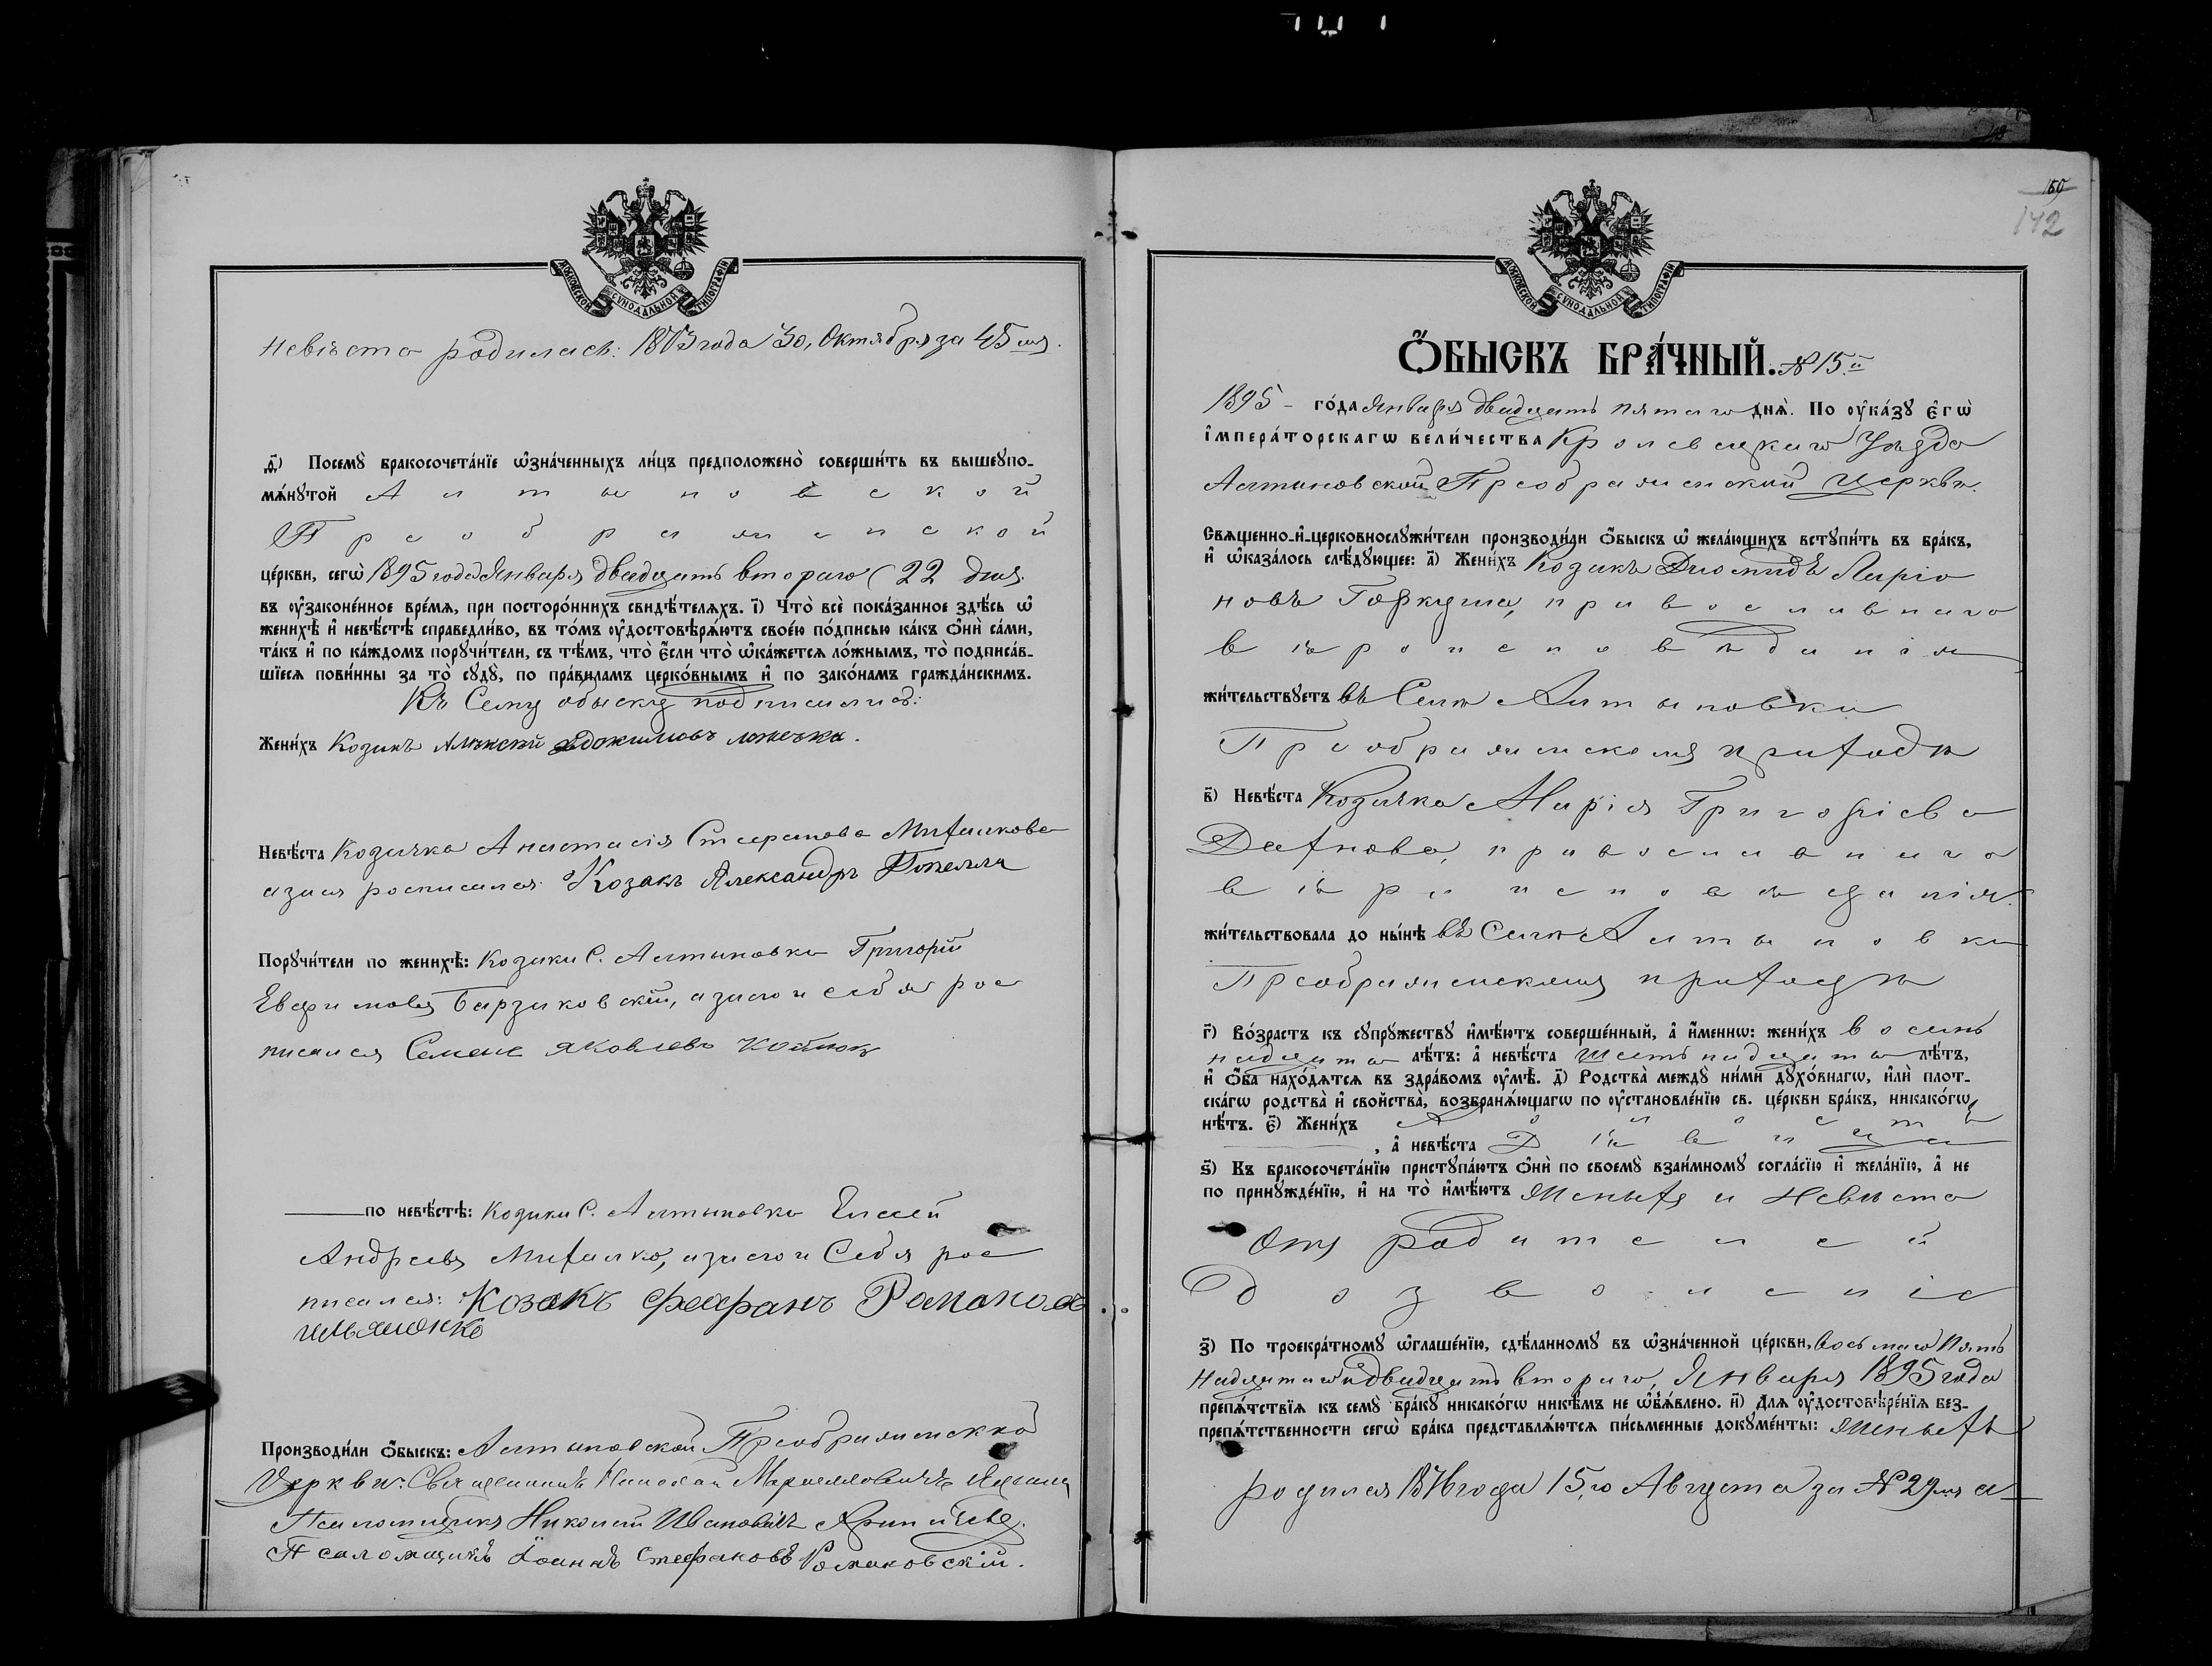 МОСКОВСКОЙ СУНОДАЛЬНОЙ ТИПОГРАФІИ
невѣста родилась: 1873 года 30, Октября за 45 мъ.
д҃і) Посемꙋ̀ бракосочета́нїе ѡ҆зна́ченныхъ ли́цъ предположено̀ соверши́ть въ вышеꙋпо-
мѧ́нꙋтой Алтыновской
Преображенской
це́ркви, сегѡ̀ 1895 года Января двадцать втораго (22 дня.
въ ᲂу҆законе́нное вре́мѧ, при посторо́ннихъ свидѣ́телѧхъ. і҃) Что̀ всѐ пока́занное здѣ́сь ѡ҆
женихѣ̀ и҆ невѣ́стѣ справедли́во, въ то́мъ ᲂу҆достовѣрѧ́ютъ свое́ю по́дписью ка́къ ѻ҆нѝ са́ми,
та́къ и҆ по ка́ждомъ порꙋчи́тели, съ тѣ́мъ, что̀ є҆́сли что̀ ѡ҆ка́жетсѧ ло́жнымъ, то̀ подписа́в-
шїесѧ пови́нны за то̀ сꙋдꙋ̀, по пра́виламъ церко́внымъ и҆ по зако́намъ гражда́нскимъ.
Къ Сему обыску подписались:
Жени́хъ Козакъ Алексѣй Евдокимовъ
Невѣ́ста Козачка Анастасія Стефанова Михалкова
а за ея росписался Козакъ Александръ
Порꙋчи́тели по женихѣ̀: Козаки С. Алтыновка Григорій
Евфимовъ Барзиковскій, а за его и себя рос
писался Семенъ Яковлевъ
по невѣ́стѣ: Козаки С. Алтыновка Елисей
Андреевъ Михалко, а за его и Себя рос
писался: Козакъ Романовъ
Производи́ли ѻ҆́быскъ: Алтыновской Преображенской
Церкви: Священникъ
Псаломщикъ Николай Ивановичъ
Псаломщикъ Іоаннъ Стефановъ Романовскій.
150
142
МОСКОВСКОЙ СУНОДАЛЬНОЙ ТИПОГРАФІИ
Ѻ҆́БЫСКЪ БРА́ЧНЫЙ. № 15 й
1895 – го́да Января двадцать пятаго днѧ̀. По ᲂу҆ка́зꙋ є҆гѡ̀
і҆мпера́торскагѡ вели́чества Кролевецкаго Уѣзда
Алтыновской Преображенской Церкви.
Свѧщенно-и҆-церковнослꙋжи́тели производи́ли ѻ҆́быскъ ѡ҆ жела́ющихъ встꙋпи́ть въ бра́къ,
и҆ ѡ҆каза́лось слѣ́дꙋющее: а҃) Жени́хъ Козакъ Діомидъ Ларіо
новъ православнаго
вѣроисповѣданія
жи́тельствꙋетъ въ Селѣ Алтыновки
Преображенскомъ приходѣ
в҃) Невѣ́ста Козачка Марія Григоріева
Дахнова, православнаго
вѣроисповѣданія.
жи́тельствовала до ны́нѣ въ Селѣ Алтыновки
Преображенскомъ приходѣ
г҃) Во́зрастъ къ сꙋпрꙋ́жествꙋ и҆мѣ́ютъ соверше́нный, а҆ и҆́меннѡ: жени́хъ восемь
надцать лѣ́тъ: а҆ невѣ́ста шестьнадцать лѣ́тъ,
и҆ ѻ҆́ба нахо́дѧтсѧ въ здра́вомъ ᲂу҆мѣ̀. д҃) Родства̀ междꙋ̀ ни́ми дꙋхо́внагѡ, и҆лѝ плот-
ска́гѡ родства̀ и҆ сво́йства̀, возбранѧ́ющагѡ по ᲂу҆становле́нїю св. це́ркви бра́къ, никако́гѡ
нѣ́тъ. є҃) Жени́хъ Холостъ
, а҆ невѣ́ста Дѣвица
ѕ҃) Къ бракосочета́нїю пристꙋпа́ютъ ѻ҆нѝ по своемꙋ̀ взаи́мномꙋ согла́сїю и҆ жела́нїю, а҆ не
по принꙋжде́нїю, и҆ на то̀ и҆мѣ́ютъ Женихъ и Невѣста
Отъ родителей
дозволеніе
з҃) По троекра́тномꙋ ѡ҆глаше́нїю, сдѣ́ланномꙋ въ ѡ҆зна́ченной це́ркви, восьмаго Пять
надцатаго и двадцать втораго, Января 1895 года
препѧ́тствїѧ къ семꙋ̀ бра́кꙋ никако́гѡ никѣ́мъ не ѡ҆б̾ѧ́влено. и҃) Длѧ ᲂу҆достовѣре́нїѧ без-
препѧ́тственности сегѡ̀ бра́ка представлѧ́ютсѧ пи́сьменные докꙋме́нты: Женихъ
родился 1876 года 15, го Августа за № 29 мъ а